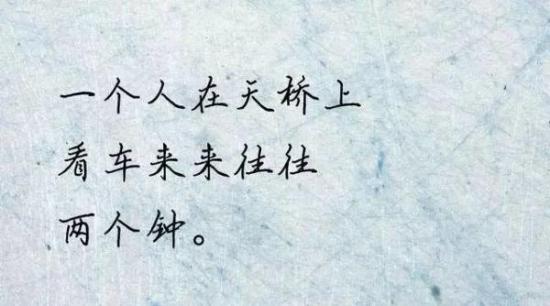 一个人在天桥上
看车来来往往
两个钟。